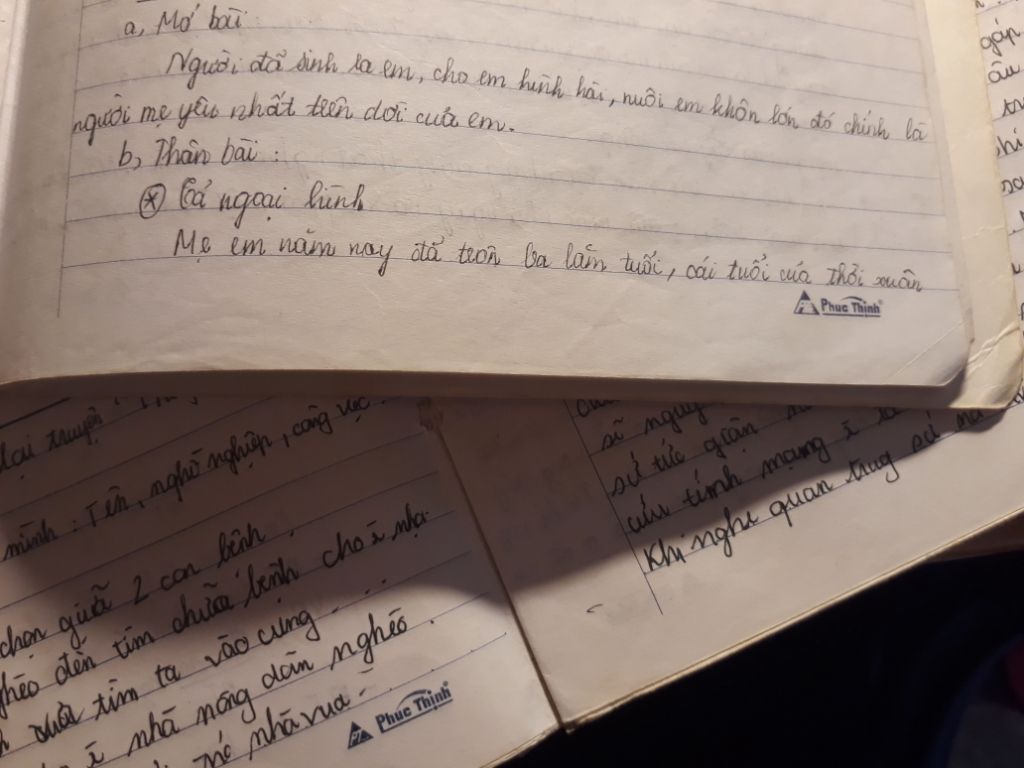 a, Mở bài
Người đã sinh ra em, cho em hình hài, nuôi em khôn lớn đó chính là
người mẹ yêu nhất trên đời của em.
b, Thân bài :
Tả ngoại hình
Mẹ em năm nay đã tròn ba lăm tuổi, cái tuổi của thời xuân
Phuc Thinh
gặp
âu
lại truyện
mình : Tên, nghề nghiệp, công việc
chọn giữa 2 con bệnh
nghèo đến tìm chữa bệnh cho
tìm ta vào cung
nhà nông dân nghèo.
nhà vua
Phuc Thinh
sĩ nguy
sứ tức giận
cứu tính mạng
Khi nghe quan trung sứ